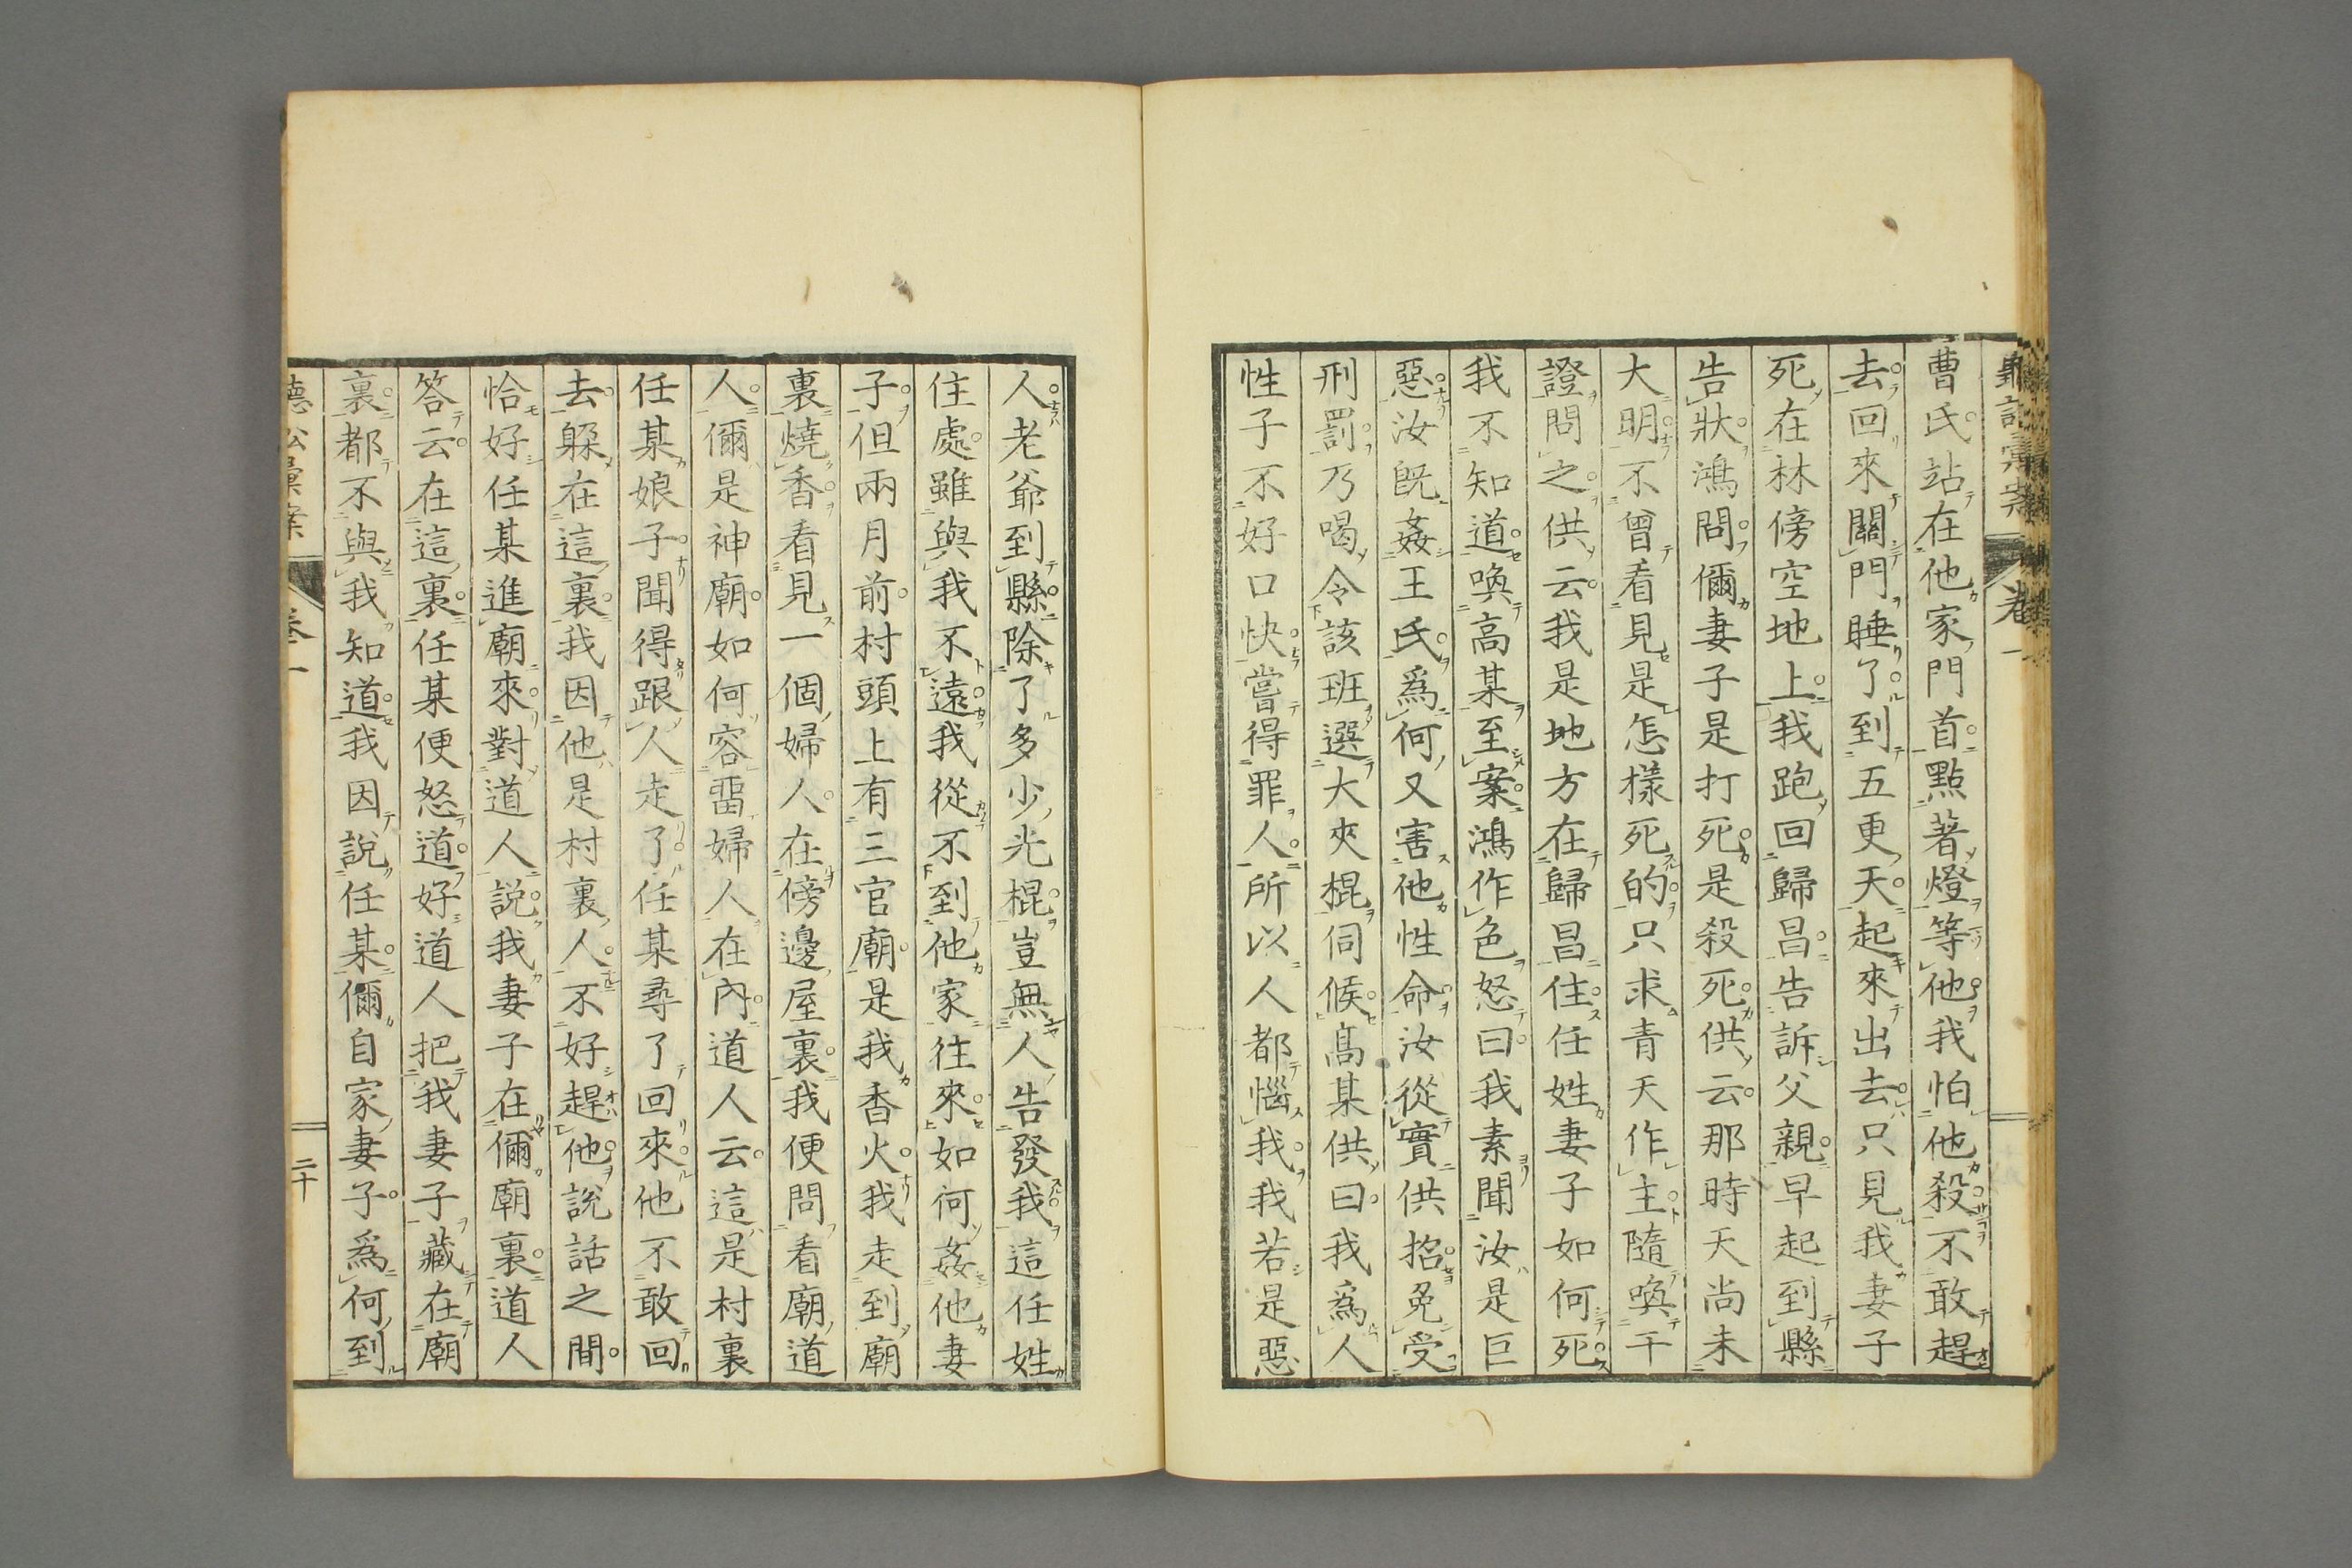 曹氏站在他家門首點著燈等他我怕他殺不敢趕
去回來關門睡了到五更天起來出去只見我妻子
死在林傍空地上我跑回歸昌告訴父親早起到縣
告狀鴻問儞妻子是打死是殺死供云那時天尚未
大明不曾看見是怎樣死的只求青天作主隨喚干
證問之供云我是地方在歸昌住任姓妻子如何死
我不知道喚高某至案鴻作色怒曰我素聞汝是巨
惡汝既姦王氏爲何又害他性命汝從實供招免受
刑罰乃喝令該班選大夾棍伺候高某供曰我爲人
性子不好口快嘗得罪人所以人都惱我我若是惡
人老爺到縣除了多少光棍豈無人告發我這任姓
住處雖與我不遠我從不到他家往來如何姦他妻
子但兩月前村頭上有三官廟是我香火我走到廟
裏燒香看見一個婦人在傍邊屋裏我便問看廟道
人儞是神廟如何容畱婦人在內道人云這是村裏
任某娘子聞得跟人走了任某尋了回來他不敢回
去躱在這裏我因他是村裏人不好趕他說話之間
恰好任某進廟來對道人說我妻子在儞廟裏道人
答云在這裏任某便怒道好道人把我妻子藏在廟
裏都不與我知道我因說任某儞自家妻子爲何到
卷一
二十